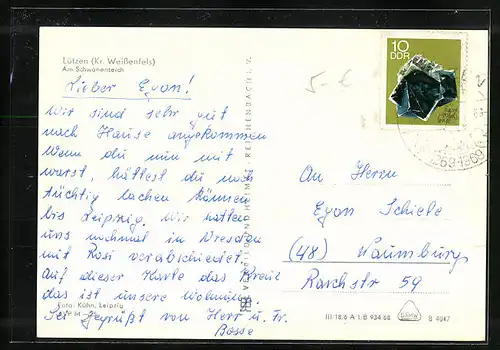 Lützen (Kr. Weißenfels)
Am Schwanenteich
Lieber Egon!
Wir sind sehr gut
nach Hause angekommen
Wenn du nun mit
warst, hättest du noch
tüchtig lachen können
bis Leipzig. Wir hatten
uns nochmal in Dresden
mit Rosi verabschiedet.
Auf dieser Karte das Kreuz
das ist unsere Wohnung.
Foto: Kühn, Leipzig
Sei gegrüßt von Herr u. Fr.
Bosse
REICHENBACH I. V.
5-€
10
DDR
An Herrn
Egon Schiele
(48) Naumburg
59
III/18/6 A 1/B 934/68
B 4047